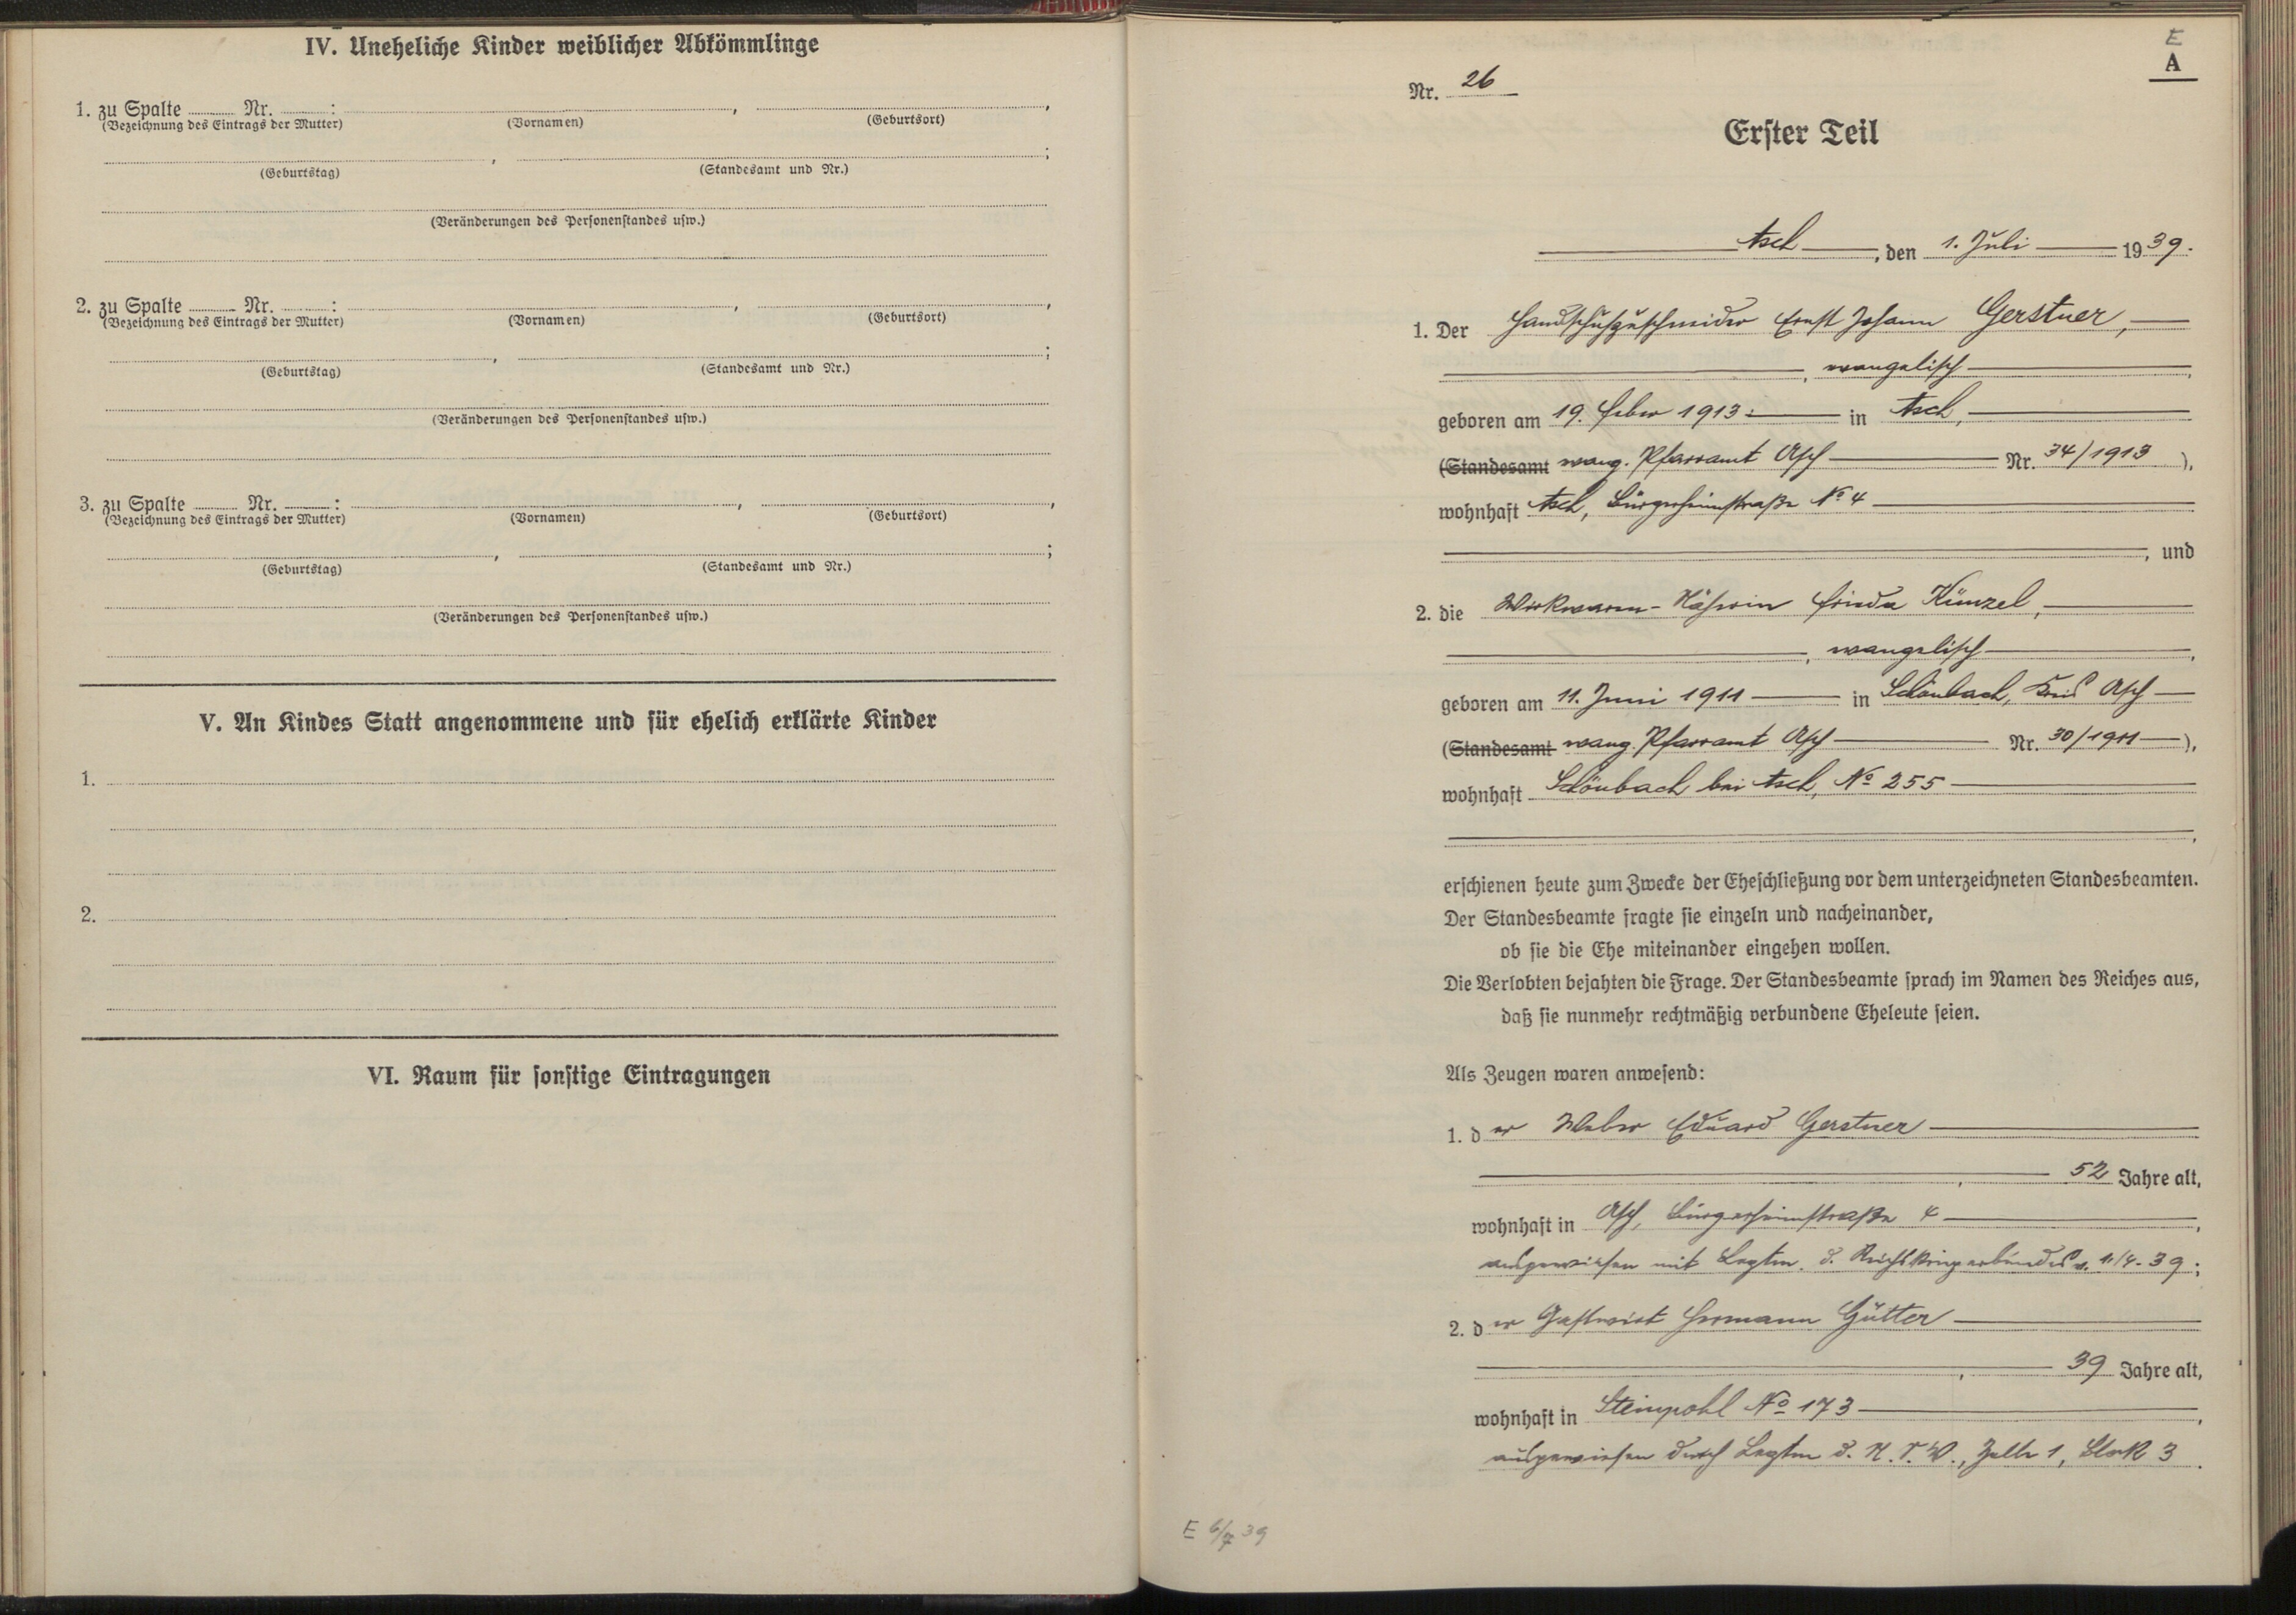 IV. Uneheliche Kinder weiblicher Abkömmlinge
1. zu Spalte Nr. :
(Bezeichnung des Eintrags der Mutter) (Vornamen) (Geburtsort)
(Geburtstag) (Standesamt und Nr.)
(Veränderungen des Personenstandes usw.)
2. zu Spalte Nr. :
(Bezeichnung des Eintrags der Mutter) (Vornamen) (Geburtsort)
(Geburtstag) (Standesamt und Nr.)
(Veränderungen des Personenstandes usw.)
3. zu Spalte Nr. :
(Bezeichnung des Eintrags der Mutter) (Vornamen) (Geburtsort)
(Geburtstag) (Standesamt und Nr.)
(Veränderungen des Personenstandes usw.)
V. An Kindes Statt angenommene und für ehelich erklärte Kinder
1.
2.
VI. Raum für sonstige Eintragungen
E
A
Nr. 26
Erster Teil
Asch, den 1. Juli 1939.
1. Der Handschuhzuschneider Ernst Johann Gerstner,
, evangelisch,
geboren am 19. Feber 1913 in Asch,
(Standesamt evang. Pfarramt Asch Nr. 34/1913),
wohnhaft Asch, Bürgerheimstraße No 4
, und
2. die Wirkwaren-Näherin Frieda Künzel,
, evangelisch,
geboren am 11. Juni 1911 in Schönbach, Kreis Asch
(Standesamt evang. Pfarramt Asch Nr. 30/1911),
wohnhaft Schönbach bei Asch, No 255
erschienen heute zum Zwecke der Eheschließung vor dem unterzeichneten Standesbeamten.
Der Standesbeamte fragte sie einzeln und nacheinander,
ob sie die Ehe miteinander eingehen wollen.
Die Verlobten bejahten die Frage. Der Standesbeamte sprach im Namen des Reiches aus,
daß sie nunmehr rechtmäßig verbundene Eheleute seien.
Als Zeugen waren anwesend:
1. der Weber Eduard Gerstner
, 52 Jahre alt,
wohnhaft in Asch, Bürgerheimstraße 4,
ausgewiesen mit Legtm. d. Reichskriegerbundes v. 1/4.39;
2. der Gastwirt Hermann Gütter
, 39 Jahre alt,
wohnhaft in Steinpöhl No 173,
ausgewiesen durch Legtm d. , Zelle 1, Block 3.
E 6/7 39